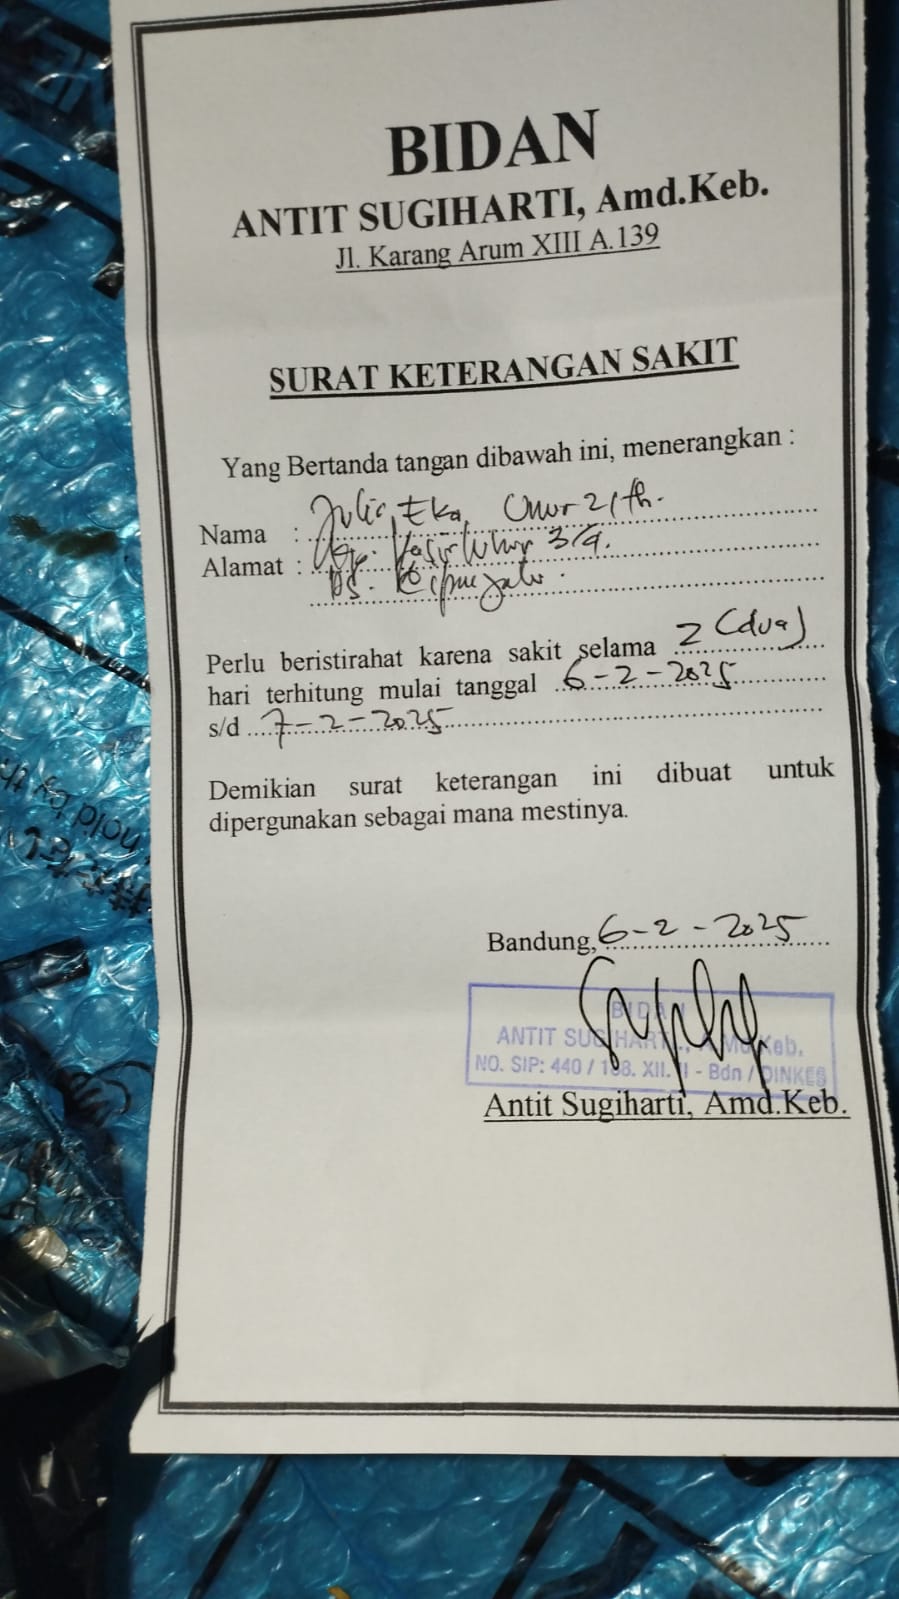 BIDAN
ANTIT SUGIHARTI, Amd.Keb.
Jl. Karang Arum XIII A.139
SURAT KETERANGAN SAKIT
Yang Bertanda tangan dibawah ini, menerangkan :
Nama : Julia Eka, Umur 21 th.
Alamat :
Perlu beristirahat karena sakit selama 2 (dua)
hari terhitung mulai tanggal 6-2-2025
s/d 7-2-2025
Demikian surat keterangan ini dibuat untuk
dipergunakan sebagai mana mestinya.
Bandung, 6-2-2025
BIDAN
ANTIT SUGIHARTI., Keb.
NO. SIP: 440 / - Bdn / DINKES
Antit Sugiharti, Amd.Keb.